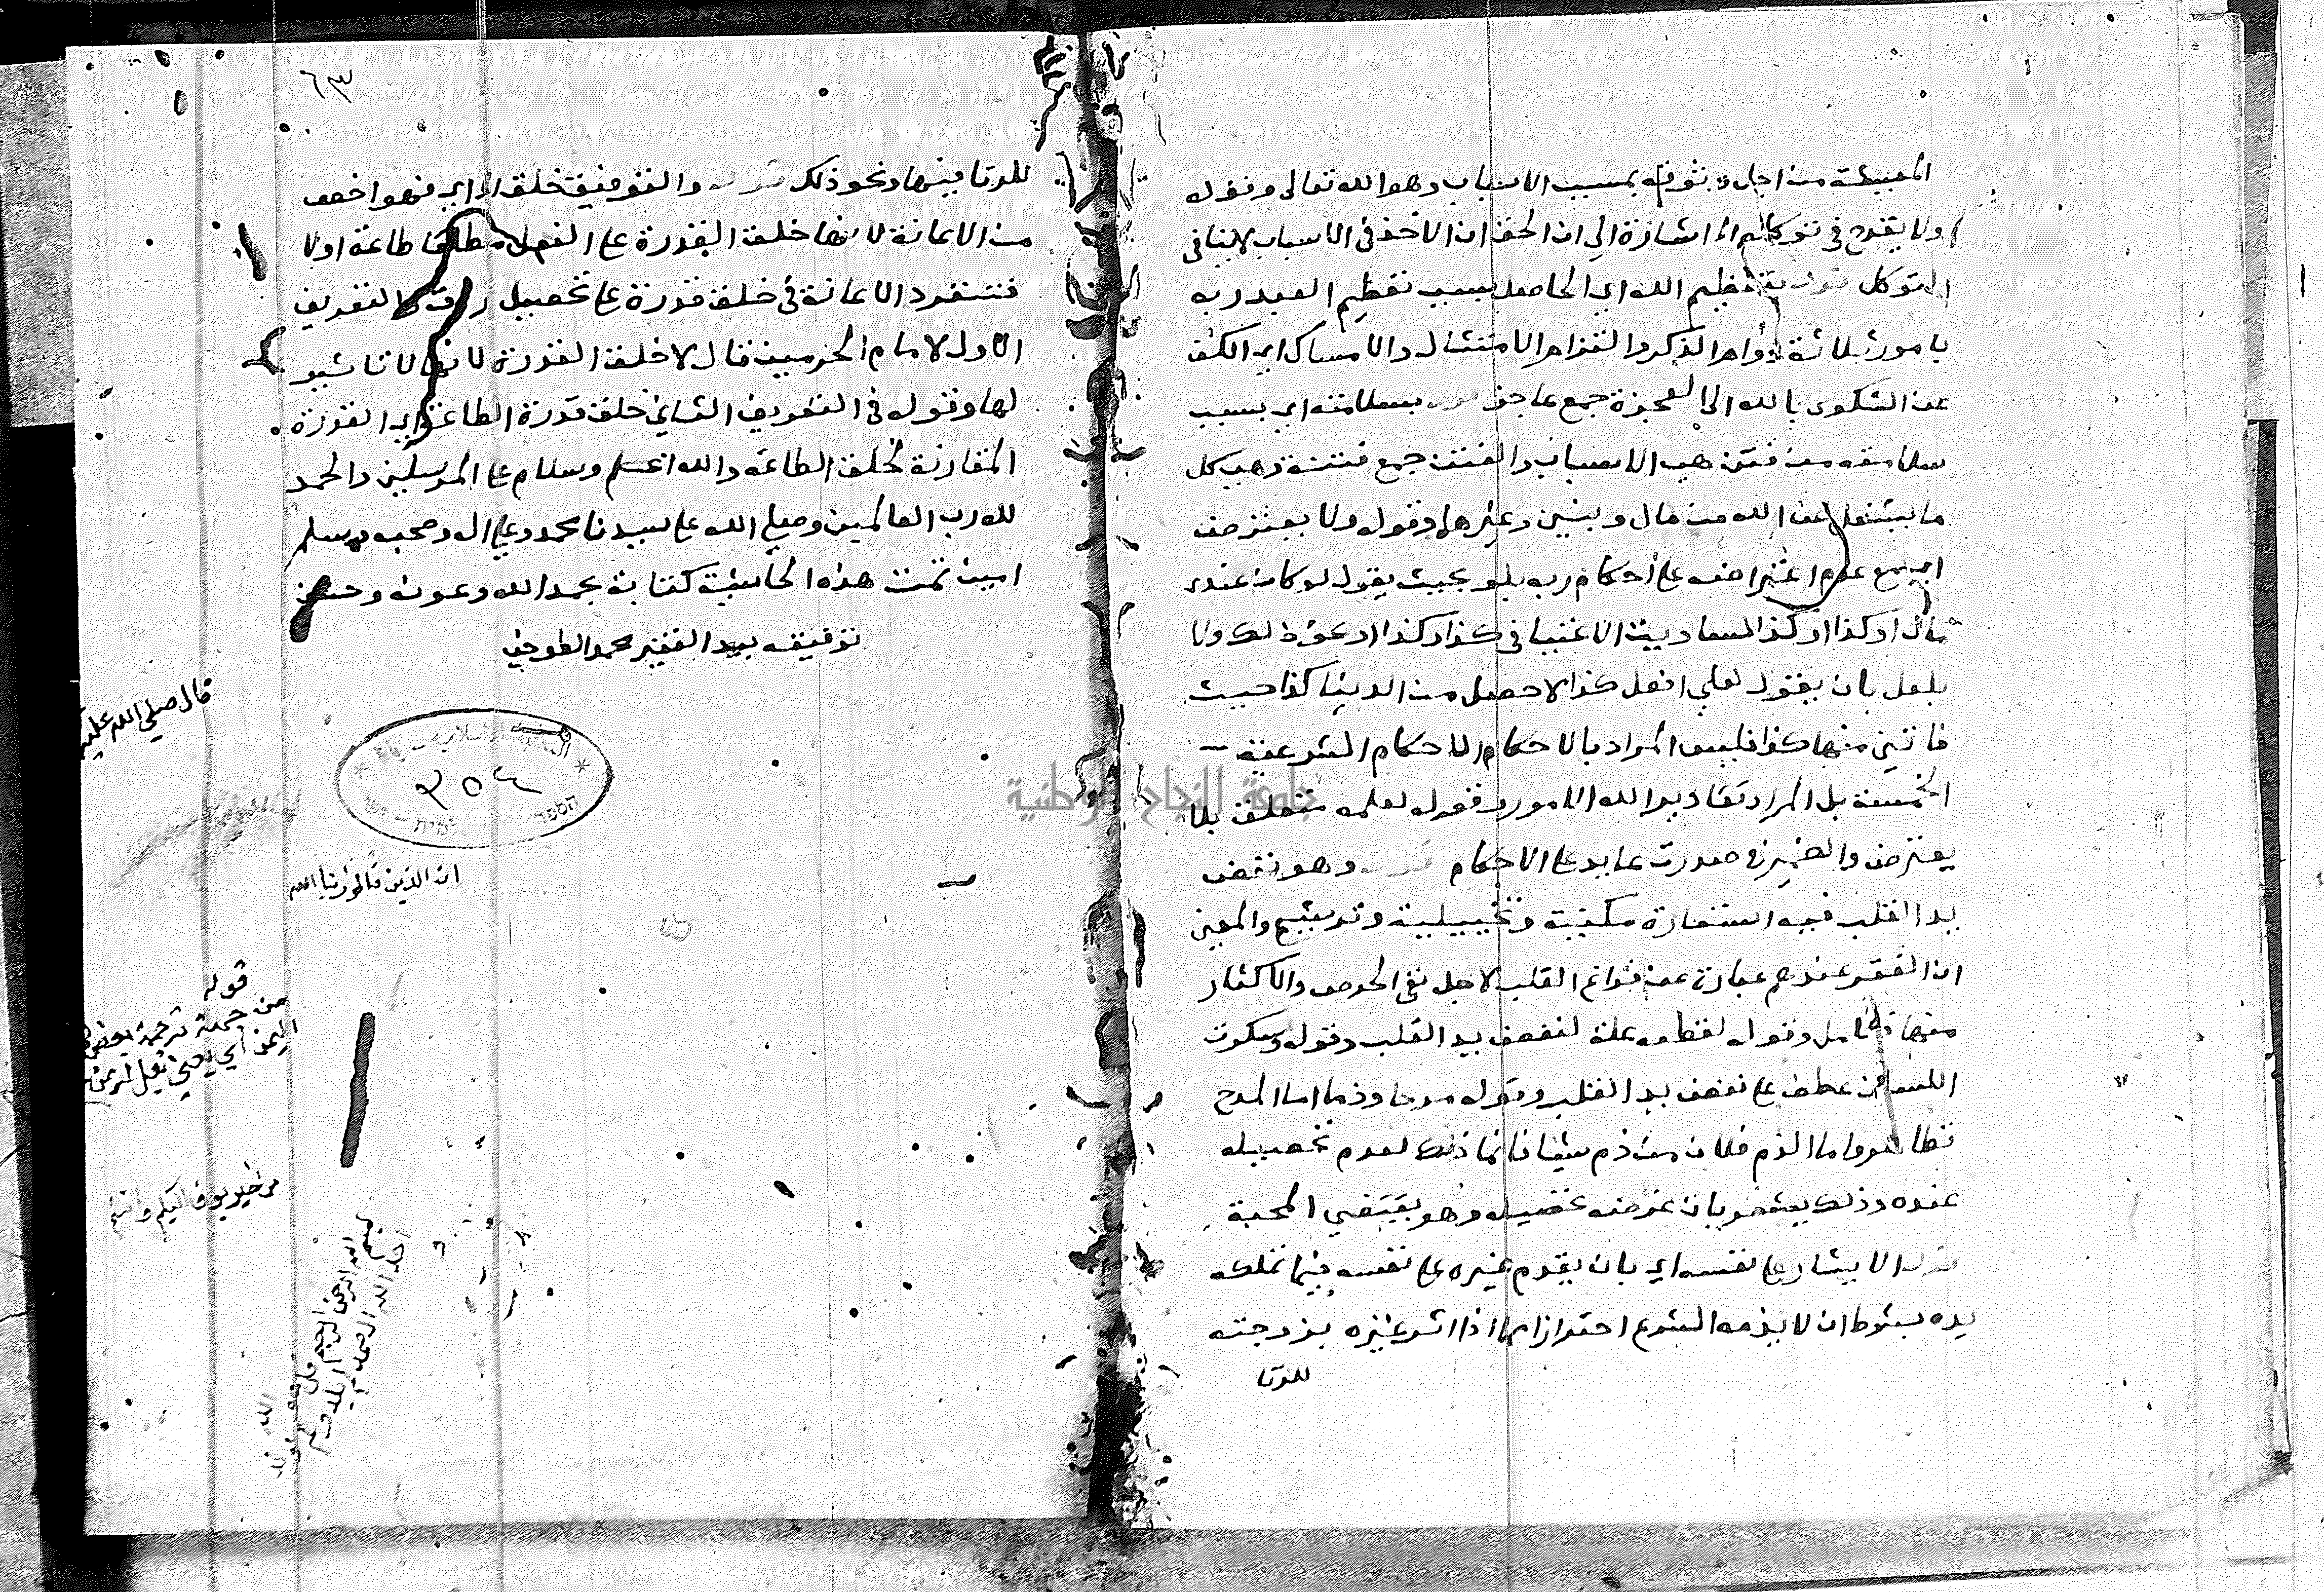 المعيشة من اجل وثوقه بمسبب الاسباب وهو الله تعالى وقوله
ولا يقدح في توكلهم الخ اشارة الى ان الحق ان الاخذ في الاسباب لا ينافي
التوكل قوله بتعظيم الله اي الحاصل بسبب تعظيم العبد ربه
بامور ثلاثة دوام الذكر والتزام الامتثال والامساك اي الكف
عن الشكوى بالله الى العجزة جمع عاجز قوله بسلامته اي بسبب
سلامته من فتن هي الاسباب والفتن جمع فتنة وهي كل
ما يشغل عن الله من مال وبنين وغيرها وقوله ولا يعترض
اي مع عدم اعتراضه على أحكام ربه بلو بحيث يقول لو كان عندي
مال او كذا او كذا لساويت الاغنيا في كذا وكذا او نحو ذلك ولا
بلعل بان يقول لعلي افعل كذا لاحصل من الدنيا كذا حيث
فاتني منها كذا فليس المراد بالاحكام الاحكام الشرعية
الخمسة بل المراد تقادير الله الامور وقوله لعلمه متعلق بلا
يعترض والضمير في صدرت عايد على الاحكام قوله وهو نفض
يد القلب فيه استعارة مكنية وتخييلية وترشيح والمعنى
ان الفقر عندهم عبارة عن فراغ القلب لاجل نفي الحرص والاكثار
منها فتأمل وقوله لقطعه علة لنفض يد القلب وقوله وسكوت
اللسان عطف على نفض يد القلب وقوله مدحا وذما اما المدح
فظاهر واما الذم فلان من ذم شيئا فانما ذلك لعدم تحصيله
عنده وذلك يشعر بان غرضه تحصيله وهو يقتضي المحبة
قوله الايثار على نفسه اي بان يقدم غيره على نفسه فيما تملكه
يده بشرط ان لا يذمه الشرع احترازا مما اذا اثر غيره بزوجته
للزنا
٦٣
للزنا فيها ونحو ذلك قوله والتوفيق خلق الخ اي فهو اخص
من الاعانة لانها خلق القدرة على الفعل مطلقا طاعة اولا
فتنفرد الاعانة في خلق قدرة على تحصيل
الاول لامام الحرمين قال لا خلق القدرة لانها لا تاثير
لها وقوله في التعريف الثاني خلق قدرة الطاعة اي القدرة
المقارنة لخلق الطاعة والله اعلم وسلام على المرسلين والحمد
لله رب العالمين وصلى الله على سيدنا محمد وعلى اله وصحبه وسلم
امين تمت هذه الحاشية كتابة بحمد الله وعونه وحسن
توفيقه بيد الفقير محمد
قال صلى الله عليه
٣٥٤
ان الذين قالوا ربنا الله
قوله
من خير يوف اليكم وانتم
بسم الله الرحمن الرحيم قل هو الله
احد الله الصمد لم
جامعة النجاح الوطنية